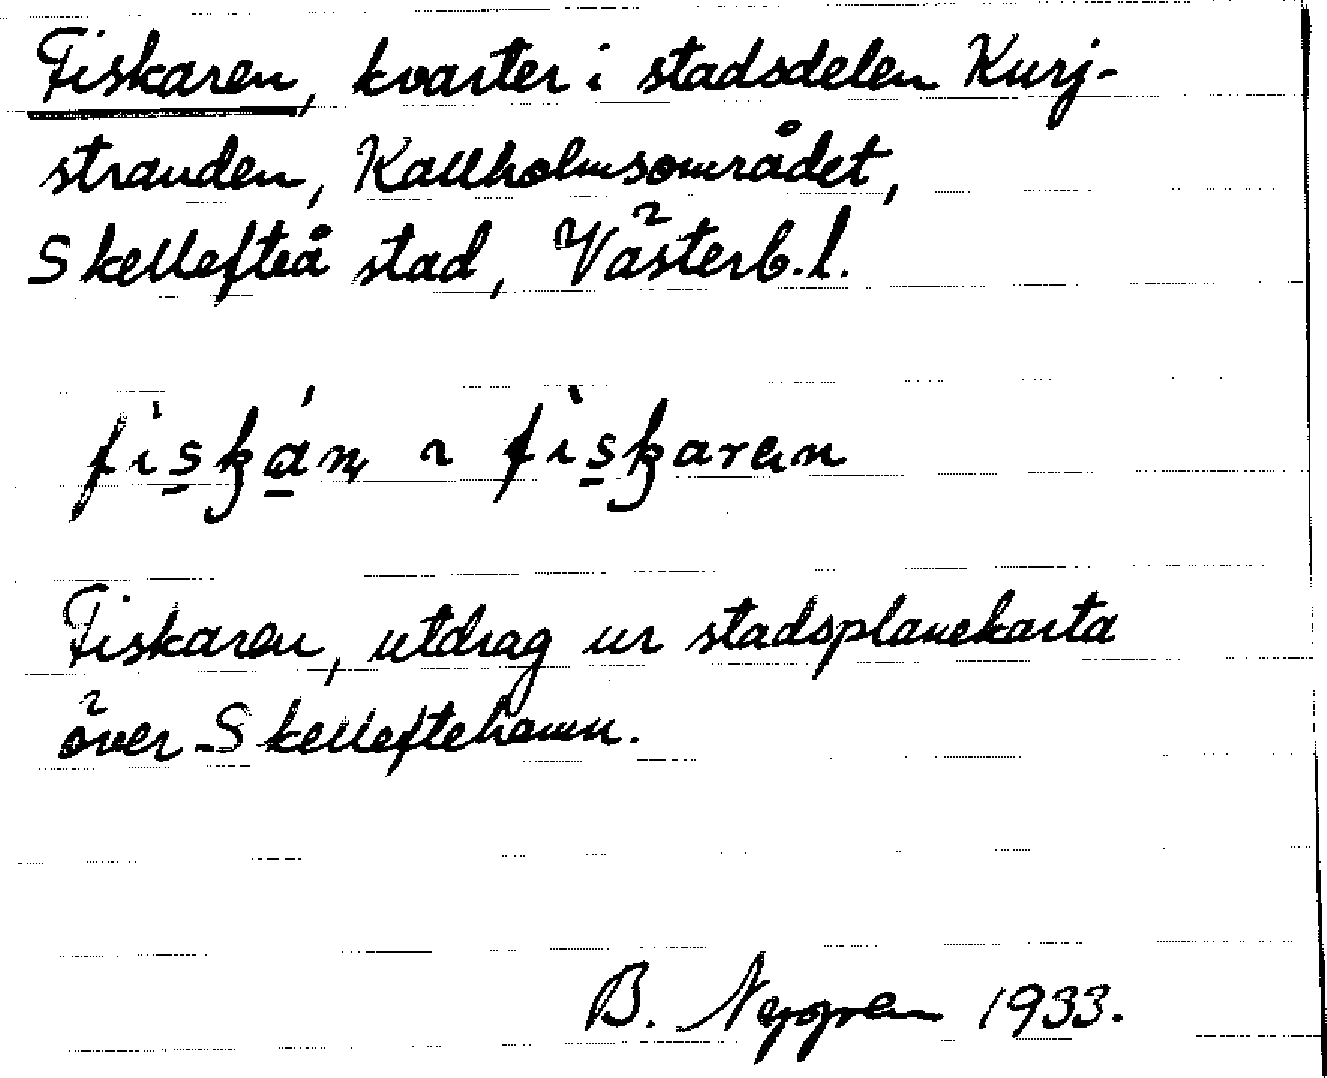 Fiskaren, kvarter i stadsdelen Kurj-
stranden, Kallholmsområdet,
Skellefteå stad, Västerb.l.
Fiskaren, utdrag ur stadsplanekarta
över Skelleftehamn.
B. Nygren 1933.